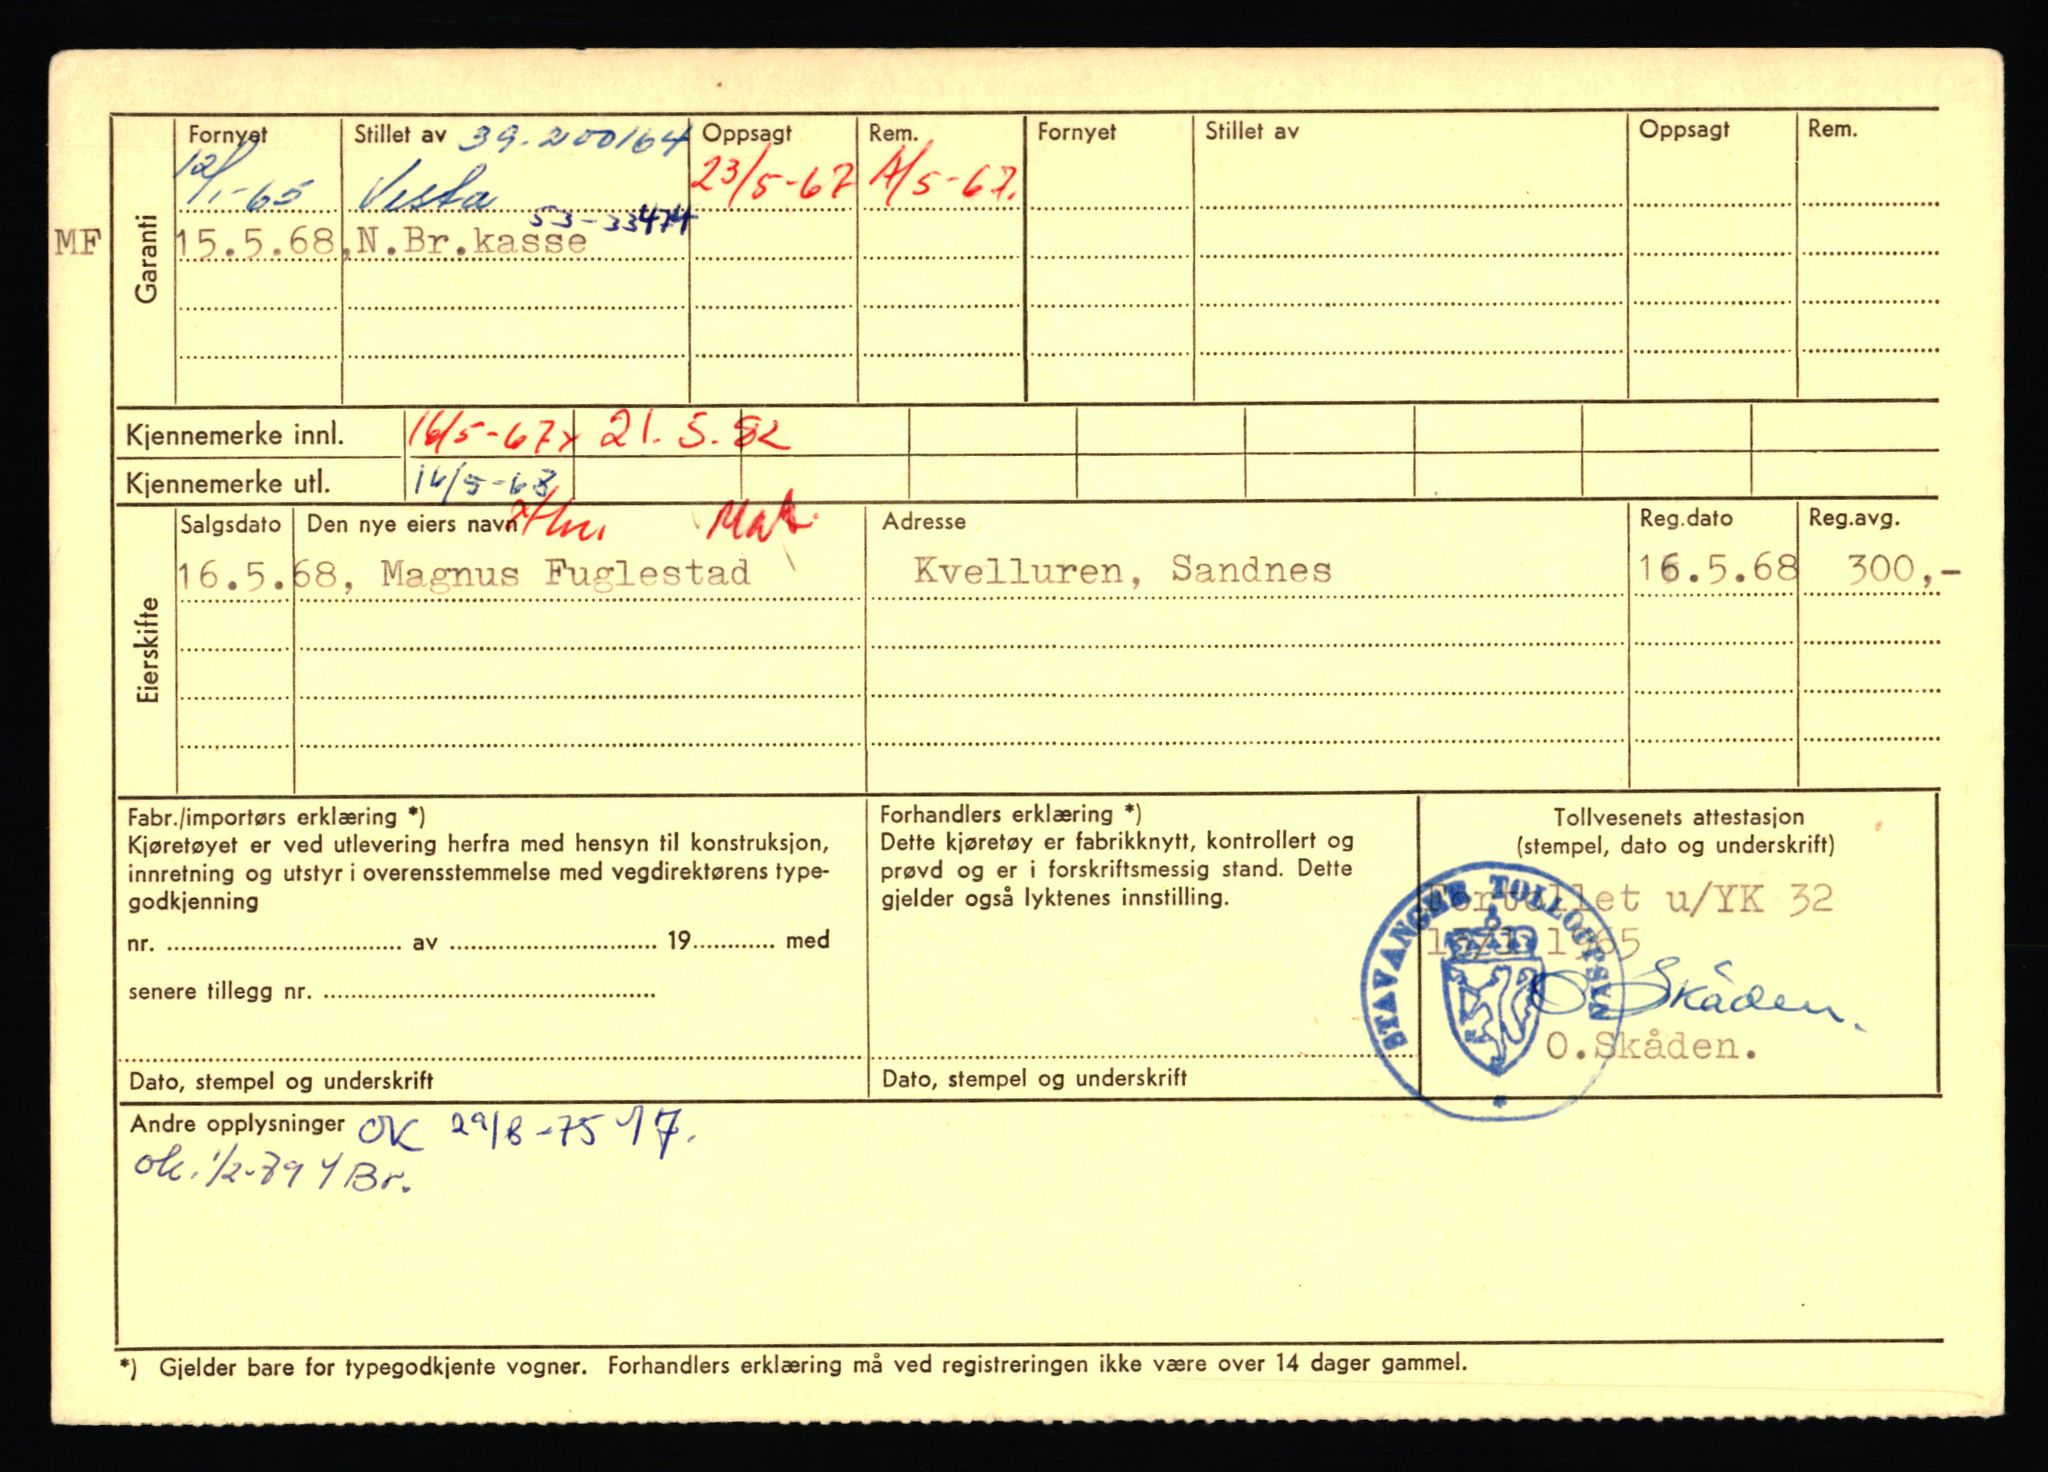 Fornyet Stillet av 39-200164 Oppsagt Rem. Fornyet Stillet av Oppsagt Rem.
12/1-65 Vesta 23/5-67 /5-67.
53-33474
MF 15.5.68, N.Br.kasse
Garanti
Kjennemerke innl. 16/5-67x 21.5.82
Kjennemerke utl. 16/5-68
Eierskifte
Salgsdato Den nye eiers navn Adresse Reg.dato Reg.avg.
16.5.68, Magnus Fuglestad Kvelluren, Sandnes 16.5.68 300,-
Fabr./importørs erklæring *)
Kjøretøyet er ved utlevering herfra med hensyn til konstruksjon,
innretning og utstyr i overensstemmelse med vegdirektørens type-
godkjenning
nr. av 19 med
senere tillegg nr.
Dato, stempel og underskrift
Forhandlers erklæring *)
Dette kjøretøy er fabrikknytt, kontrollert og
prøvd og er i forskriftsmessig stand. Dette
gjelder også lyktenes innstilling.
Dato, stempel og underskrift
Tollvesenets attestasjon
(stempel, dato og underskrift)
Fortollet u/YK 32
1965
STAVANGER TOLLOPPSYN
O Skåden.
O.Skåden.
Andre opplysninger OK 29/8-75
ok. 1/2-79 Br.
*) Gjelder bare for typegodkjente vogner. Forhandlers erklæring må ved registreringen ikke være over 14 dager gammel.